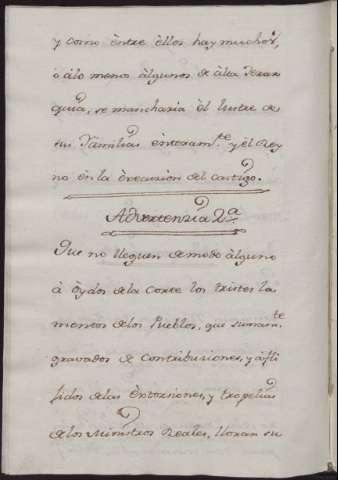 y como èntre èllos hay muchos,
ò àlo menos àlgunos de àlta Gerar
quia, se mancharia èl lustre de
sus Familias ènteram.te y èl Rey
no èn la èxecucion del castigo.
Advertenzia 2.a
Que no lleguen de modo àlguno
à òydos dela Corte los tristes la
mentos delos Pueblos, que sumam.te
gravados de Contribuziones, y àfli
jidos delas èxtorsiones, y tropelias
delos Ministros Reales, lloran su